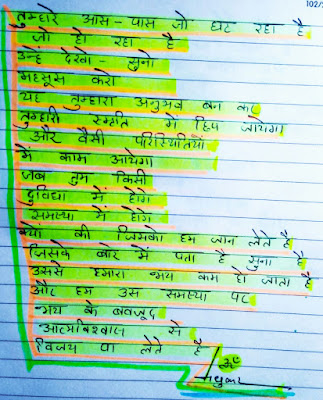 102/
तुम्हारे आस-पास जो घट रहा है
जो हो रहा है
उन्हें देखो - सुनो
महसूस करो
यह तुम्हारा अनुभव बन कर
तुम्हारी स्मृति में छिप जायेगा
और वैसी परिस्थितियों
में काम आयेगा
जब तुम किसी
दुविधा में होगे
समस्या में होगे
क्यों की जिसको हम जान लेते है
जिसके बारे में पता है सुना है
उससे हमारा भय कम हो जाता है
और हम उस समस्या पर
भय के बवजूद
आत्मविश्वास से
विजय पा लेते है
मधुकर